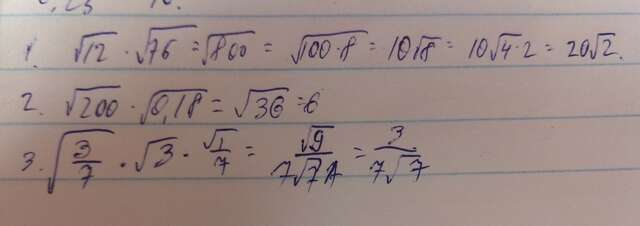 1. √12 · √76 = √800 = √100·8 = 10√8 = 10√4·2 = 20√2.
2. √200 · √0,18 = √36 = 6
3. √3/7 · √3 · √1/7 = √9/7√7 = 3/7√7